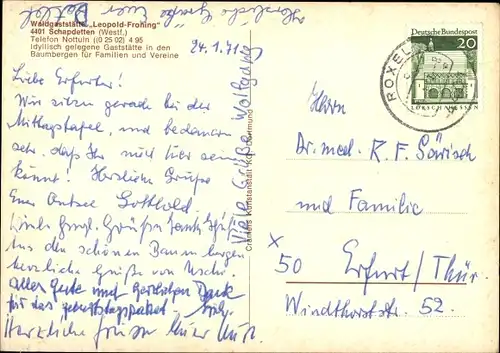 Herzliche Grüße Eure
Waldgaststätte "Leopold-Frohing"
4401 Schapdetten (Westf.)
Telefon Nottuln (0 25 02) 4 95
Idyllisch gelegene Gaststätte in den
Baumbergen für Familien und Vereine
24.1.71
Liebe Erfurter!
Wir sitzen gerade bei der
Mittagstafel, und bedauern
sehr, daß Ihr nicht hier sein
könnt! Herzliche Grüße
Euer Gotthold
Aus den schönen Baumbergen
herzliche Grüße von Uschi.
alles Gute und herzlichen Dank
für das Geburtstagspaket.
Herzliche Grüße
Viele Grüße Wolfgang
Cramers Kunstanstalt KG, Dortmund
Deutsche Bundespost
20
LORSCH/HESSEN
ROXEL
Herrn
Dr. med. K. F. Särisch
und Familie
x 50 Erfurt/Thür.
Windthorststr. 52.